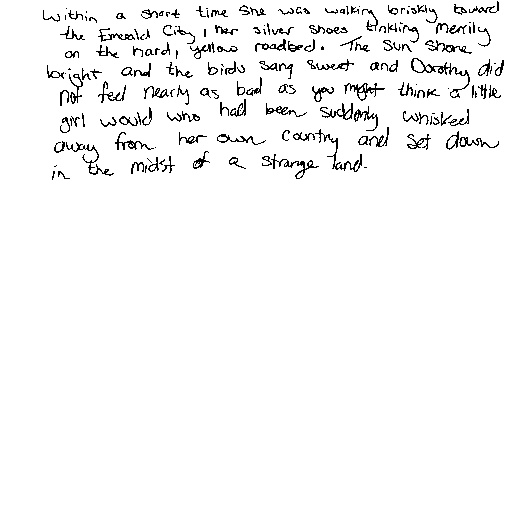 Within a short time she was walking briskly toward
the Emerald City, her silver shoes tinkling merrily
on the hard, yellow roadbed. The sun shone
bright and the birds sang sweet and Dorothy did
not feel nearly as bad as you might think a little
girl would who had been suddenly whisked
away from her own country and set down
in the midst of a strange land.